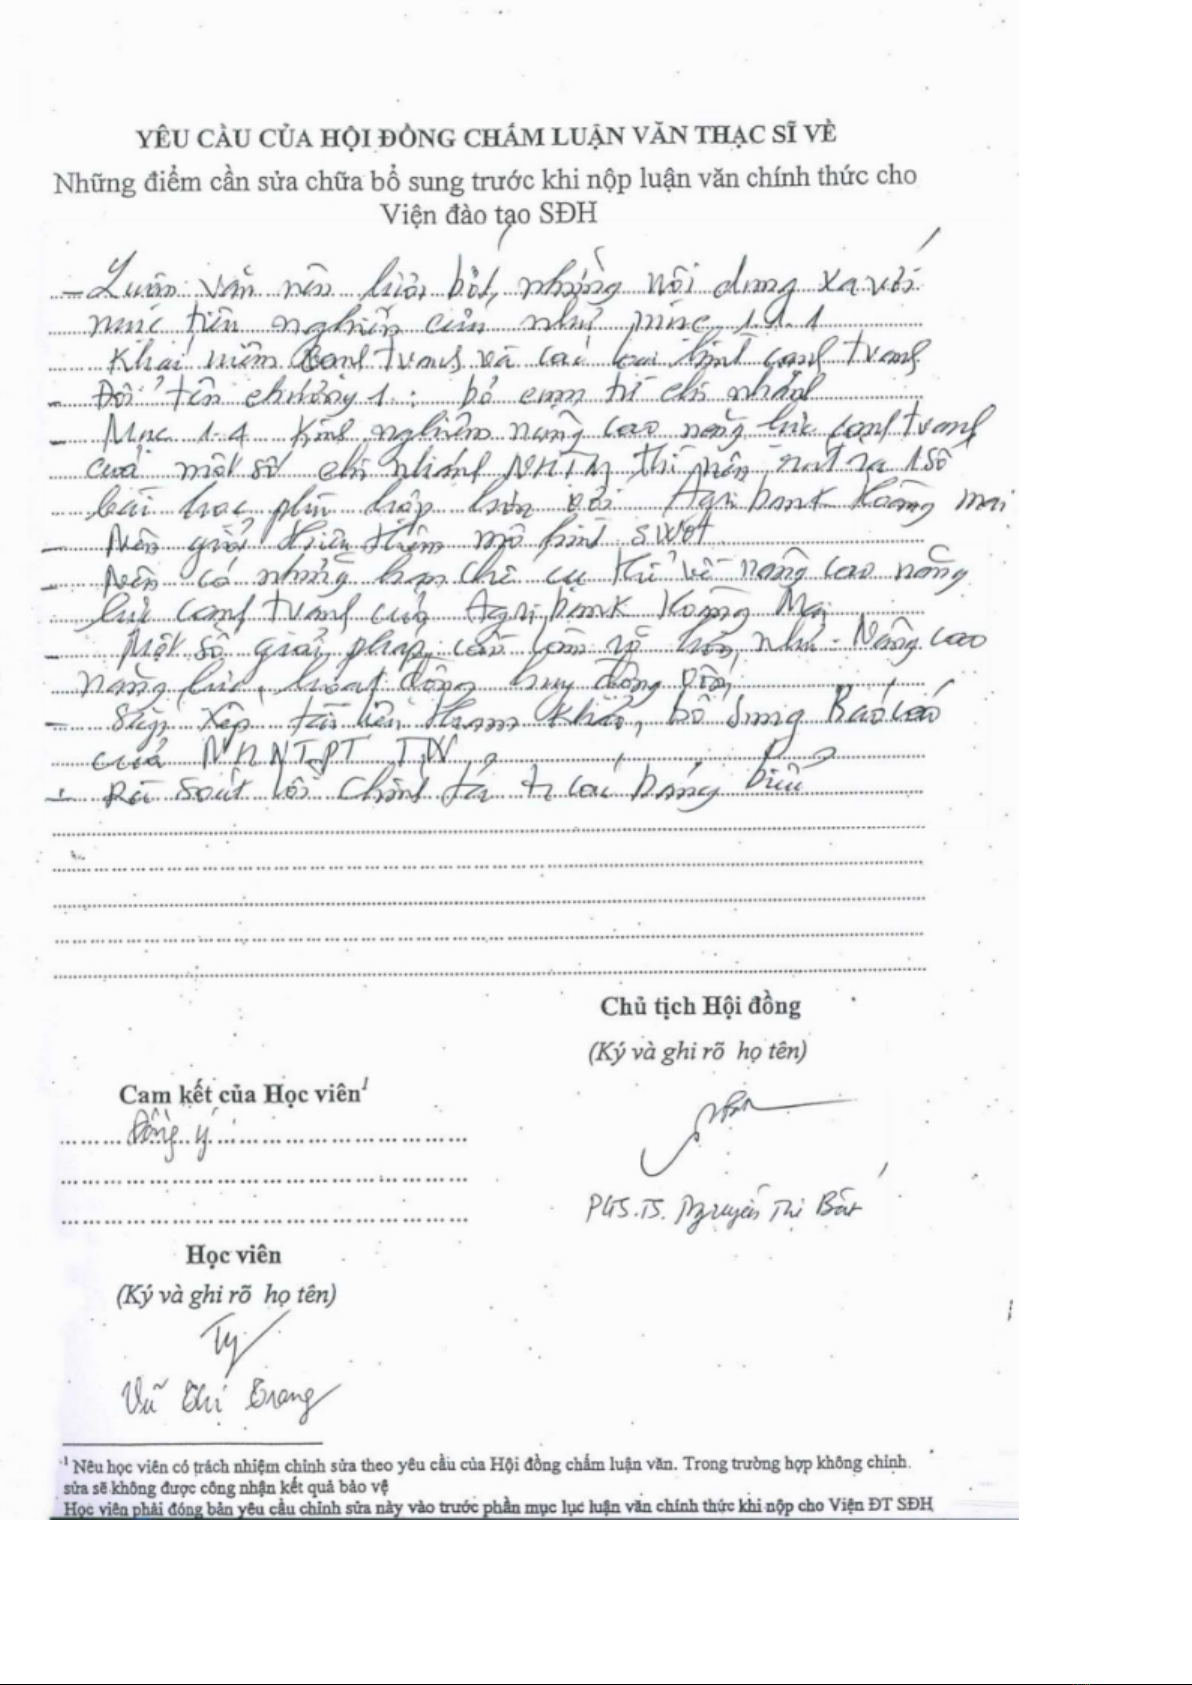 YÊU CẦU CỦA HỘI ĐỒNG CHẤM LUẬN VĂN THẠC SĨ VỀ
Những điểm cần sửa chữa bổ sung trước khi nộp luận văn chính thức cho
Viện đào tạo SĐH
- Luận văn nên lược bớt những nội dung xa với
mục tiêu nghiên cứu như mục 1.1.1
Khái niệm cạnh tranh và các loại hình cạnh tranh
- Đổi tên chương 1: bỏ cụm từ chi nhánh
- Mục 1.4 Kinh nghiệm nâng cao năng lực cạnh tranh
của một số chi nhánh NHTM thì nên rút ra 1 số
bài học phù hợp hơn với Agribank Hoàng Mai
- Nên giới thiệu thêm mô hình SWOT
- Nên có những hạn chế cụ thể về nâng cao năng
lực cạnh tranh của Agribank Hoàng Mai
- Một số giải pháp cần làm rõ hơn như: Nâng cao
năng lực hoạt động huy động vốn
- Sắp xếp tài liệu tham khảo, bổ sung Báo cáo
của NHNTPT TW
- Rà soát lỗi chính tả, các bảng biểu
Chủ tịch Hội đồng
(Ký và ghi rõ họ tên)
Cam kết của Học viên1
Đồng ý
PGS.TS. Nguyễn Thị Bất
Học viên
(Ký và ghi rõ họ tên)
Vũ Thị Trang
1 Nêu học viên có trách nhiệm chỉnh sửa theo yêu cầu của Hội đồng chấm luận văn. Trong trường hợp không chỉnh
sửa sẽ không được công nhận kết quả bảo vệ
Học viên phải đóng bản yêu cầu chỉnh sửa này vào trước phần mục lục luận văn chính thức khi nộp cho Viện ĐT SĐH